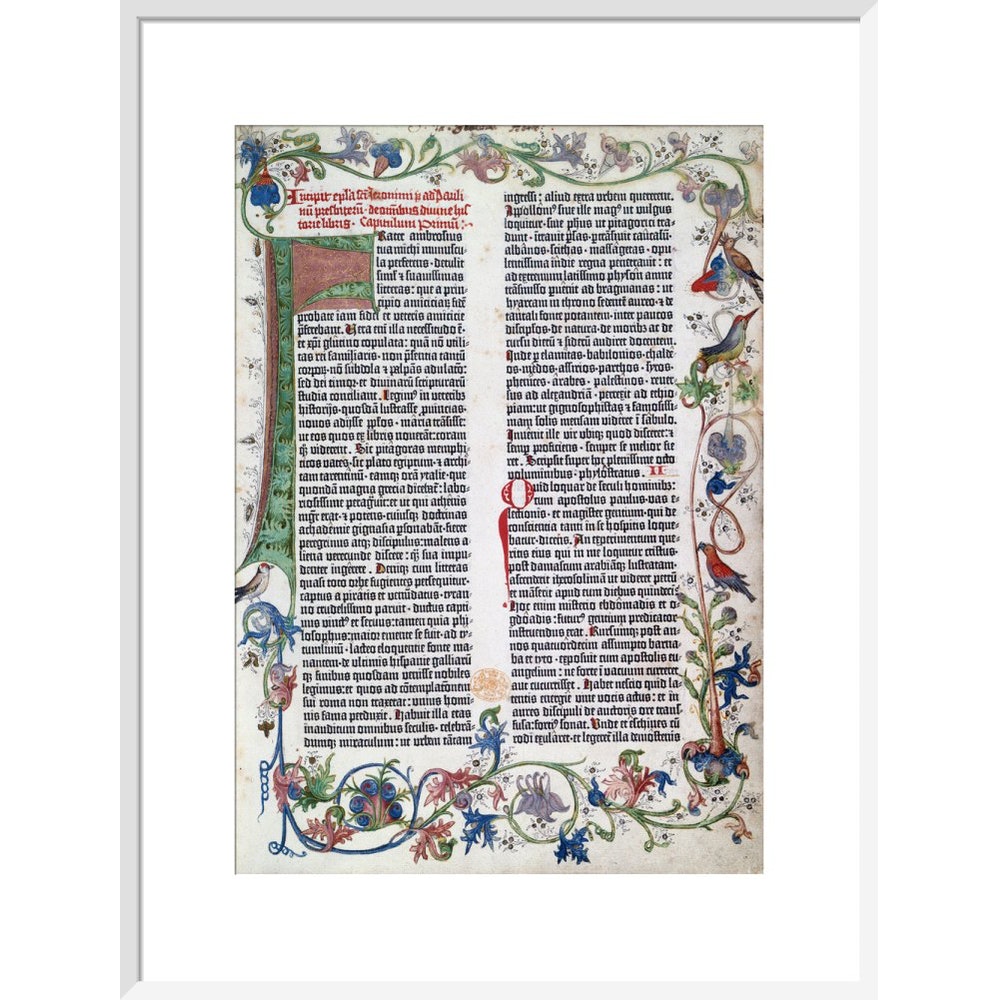 Incipit epl̄a sc̄i Jeronimi p̄ ad Pauli
nū presbiterū · de om̄ibus diuine his
torie libris · Capitulum Primū :·
FRater ambrosius
tua michi munuscu
la perferens · detulit
siml̉ ⁊ suauissimas
litteras: que a prin
cipio amiciciaꝝ fidē
probate iam fidei ⁊ veteris amicicie
p̄ferebant. Uera em̄ illa necessitudo ē ·
et xp̄i glutino copulata: quā nō vtili
tas rei familiaris · nō p̄sentia tantū
corpoꝝ · nō subdola ⁊ palpās adulac̄o:
sed dei timor · et diuinaꝝ scripturarū
studia conciliant. Legimꝰ in veterib⁊
historijs · quosdā lustrasse ꝓuincias ·
nouos adijsse ppl̄os · maria trāsisse:
ut eos quos ex libris nouerāt: coram
qꝫ viderent. Sic pitagoras memphi
ticos vates · sic plato egiptum · ⁊ archi
tam tarentinū · eamqꝫ orā ytalie · que
quondā magna grecia diceba̅t̅: labo
riosissime peragrauit: et ut qui athenis
mgr̄ erat · ⁊ potens · cuiusqꝫ doctrinas
achademie gignasia ꝑsonabāt · fieret
peregrinus atqꝫ discipulus: malens a
liena verecunde discere: qꝫ sua impu
denter ingerere. Deniqꝫ cum litteras
quasi toto orbe fugientes persequitur ·
captus a piratis et venūdatus · tyran
no crudelissimo paruit · ductus capti
uus vinctꝰ et seruus: tamen quia phi
losophus: maior emente se fuit · ad ty
tumliuiū · lacteo eloquentie fonte ma
nantem · de vltimis hispanie galliarū
qꝫ finibus quosdam venisse nobiles
legimus: et quos ad cōtemplac̄onē
sui roma non traxerat: vnius homi
nis fama perduxit. Habuit illa etas
inauditum omnibus seculis · celebrā
dumqꝫ miraculum: ut vrbem tātam
ingressi: aliud extra vrbem quererent.
Appollonꝰ siue ille magꝰ ut vulgus
loquitur · siue phūs ut pitagorici tra
dunt · ītrauit ꝑsas · ꝑtrāsiuit caucasū ·
albānos · scithas · massagetas · opu
lentissima indie regna penetrauit: et
ad extremum latissimo physon amne
trāsmisso ꝑuenit ad bragmanas: ut
hyarcam in throno sedentē aureo · ⁊ de
tantali fonte potantem · inter paucos
discipl̄os · de natura · de moribꝫ ac de
cursu dierū ⁊ siderū audiret docentem.
Inde ꝑ elamitas · babilonios · chalde
os · medos · assirios · parthos · syros ·
phenices · arabes · palestinos · reuer
sus ad alexandriā · perrexit ad ethio
piam: ut gignosophistas ⁊ famosissi
mam solis mensam videret ī sabulo.
Inuenit ille vir vbiqꝫ quod disceret: ⁊
semꝑ proficiens · semper se melior fie
ret. Scripsit super hoc plenissime octo
voluminibus · phylostratus. II
QUid loquar de seculi hominibꝫ:
cum apostolus paulus · vas e
lectionis · et magister gentium · qui de
conscientia tanti in se hospitis loque
batur · dicens. An experimentum que
ritis eius qui in me loquitur cristus.
Post damascum arabiāqꝫ lustratam ·
ascenderit iherosolimā ut videret petrū
et māserit apud eum diebus quindeci.
Hoc enim misterio ebdomadis et o ·
gdoadis: futurꝰ gentium predicator
instruendus erat. Rursumqꝫ post an
nos quatuordecim assumpto barna
ba et tyto · exposuit cum apostolis eu
angelium: ne forte ī vacuum curreret
aut cucurrisset. Habet nescio quid la
tentis energie · viue vocis actus: et in
aures discipuli de auctoris ore trans
fusa: fortiꝰ sonat. Unde et eschines cū
rodi exularet · et legeretur illa demostenis